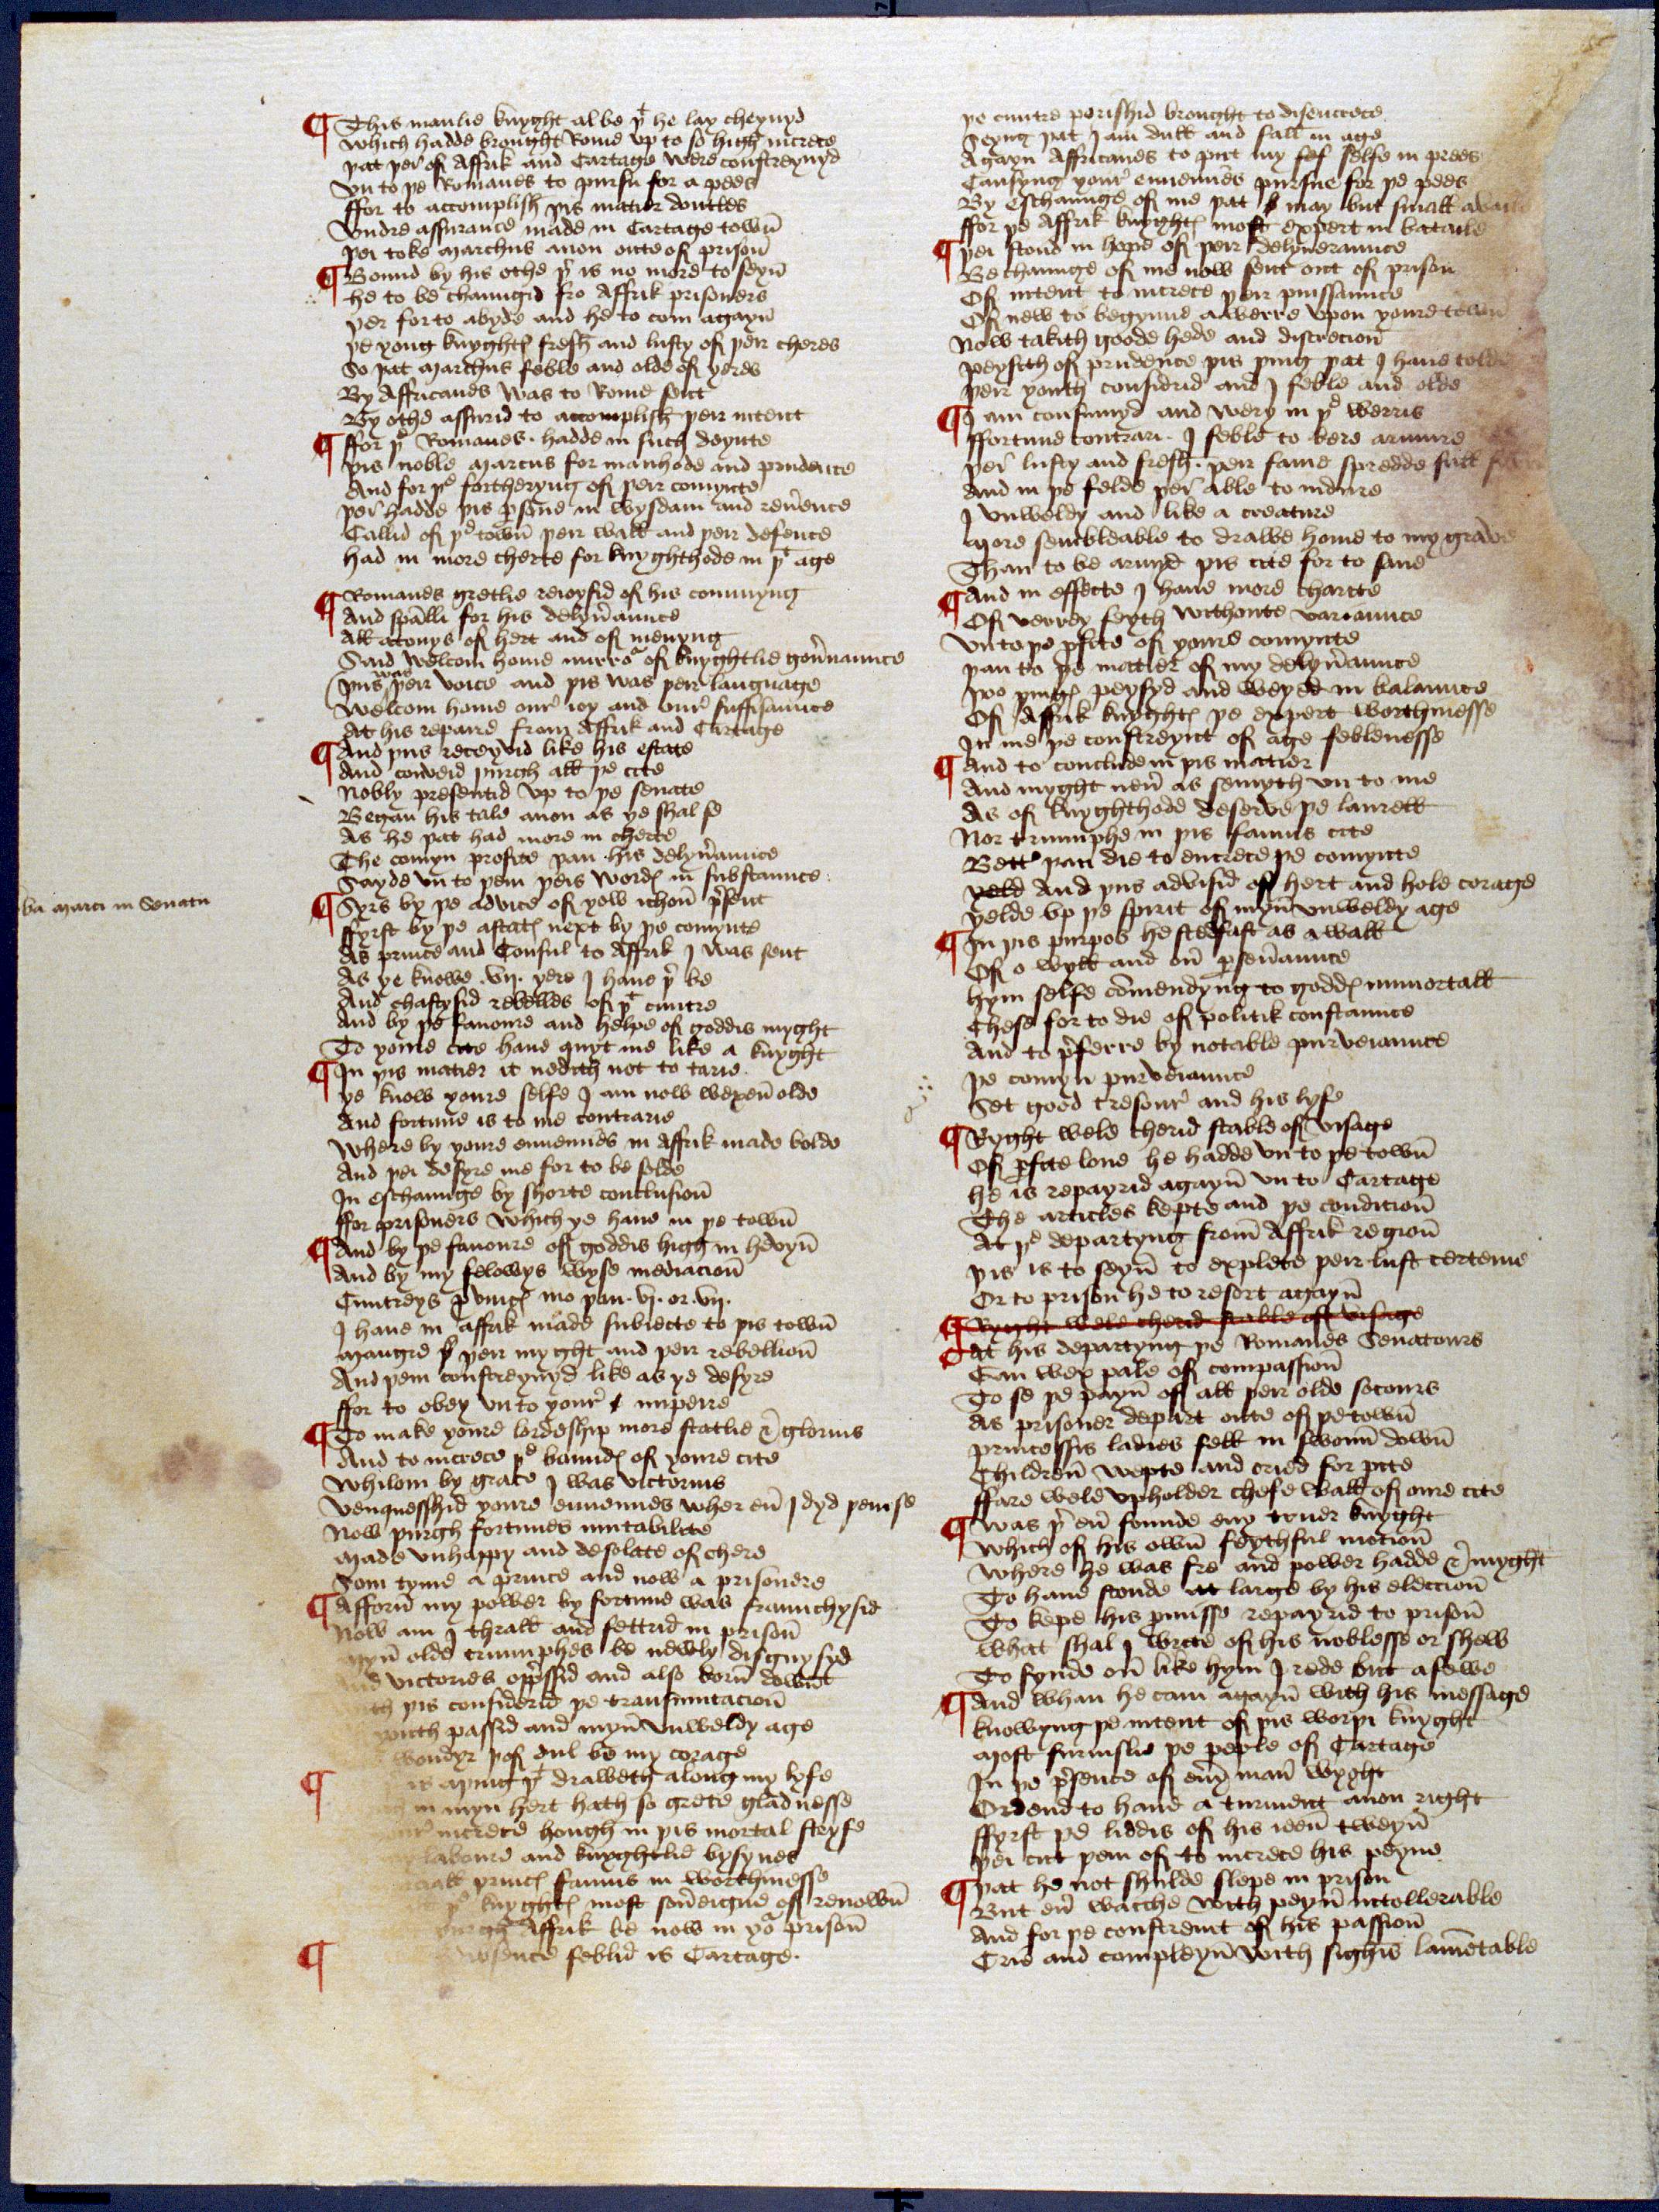 ¶ This manlie knyght al be þt he lay cheynyd
Which hadde brought Rome vp to so high increce
þat þer of Affrik and Cartage were constreynyd
Vn to þe Romanes to pursu for a pees
ffor to accomplish þis matier doutles
Vndre assurance made in Cartage town̄
þei toke Marchus anon oute of prison̄
¶ Bound by his othe þr is no more to seyn̄
He to be chaungid fro Affrik prisoners
þer forto abyde and he to com agayn̄
þe yong knyghtꝭ fresh and lusty of þeir cheres
So þat Marchus feble and olde of yeres
By Affricanes was to Rome sent
By othe assurid to accomplish þeir intent
¶ ffor þe Romanes hadde in such deynte
þis noble Marcus for manhode and prudence
And for þe fortheryng of þeir comynte
þer hadde þis ꝑsone in wysdam and reu̅ence
Callid of þe town̄ þeir wall and þeir defence
Had in more cherte for knyghthode in þt age
¶ Romanes gretlie reioysid of his commyng
And spāĺli for his delyu̅aunce
All attonys of hert and of menyng
Said welcom home mirroᵃ of knyghtlie gou̅naunce
þus was þeir voice and þis was þeir language
Welcom home our ioy and our suffisaunce
At his repaire from Affrik and Cartage
¶ And þus receyvid like his estate
And conveid þurgh all þe cite
Nobly presentid vp to þe senate
Began his tale anon as ye shal se
As he þat had more in cherte
The comyn profite þan his delyu̅aunce
Sayde vn to þem þeis wordꝭ in substaunce
ba marci in Senatu
¶ Syrs by þe advice of yow ichon̄ p̄sent
ffyrst by þe astatꝭ next by þe comynte
As prince and Consul to Affrik I was sent
As ye knowe .vij. yere I haue þr be
And chastysid rebelles of þt cuntre
And by þe fauoure and helpe of goddis myght
To youre cite haue quyt me like a knyght
¶ In þis matier it nedith not to tarie
ye know youre selfe I am now wexen̄ olde
And fortune is to me contrarie
Where by youre ennemies in Affrik made bolde
And þei desyre me for to be solde
In eschaunge by shorte conclusion̄
ffor prisoners which ye haue in þe town̄
¶ And by þe fauoure of goddis high in hevyn̄
And by my felowys wyse mediacion̄
Cuntreys ꝓvincꝭ mo þan .vj. or .vij.
I haue in Affrik made subiecte to þis town̄
Maugre þeir myght and þeir rebellion̄
And þem constreynyd like as ye desyre
ffor to obey vn to your impeire
¶ To make youre lordeship more statlie & glorius
And to increce þe boundꝭ of youre cite
Whilom by grace I was victorius
Venquesshid youre ennemies wher eu̅ I dyd þem se
Now þurgh fortunes mutabilite
Made vnhappy and desolate of chere
Som tyme a prince and now a prisonere
¶ Afforn̄ my power by fortune was fraunchysid
Now am I thrall and fettrid in prison̄
myn̄ olde triumphes be newly disguysyd
And victories opp̄ssid and also born̄ down̄
With þis considerid þe transmutacion̄
youth passid and myn̄ vnweldy age
wondyr þof dul be my corage
¶ is a þing þt draweth along my lyfe
in myn hert hath so grete gladnesse
your increce þough in þis mortal stryfe
laboure and knyghtlie bysynes
all princꝭ famus in worthinesse
þe knyghtꝭ most sou̅eigne of renown̄
þurgh Affrik be now in yoᵃ prison̄
¶ absence feblid is Cartage.
þe cuntre perishid brought to disencrece
Seyng þat I am dull and fall in age
Agayn Affricanes to put my sef selfe in prees
Causyng your ennemies pursue for þe pees
By eschaunge of me þat may but small availe
ffor þe Affrik knyghtꝭ most expert in bataile
¶ þei stond in hope of þeir delyueraunce
Be chaunge of me now sent out of prison
Of intent to increce þeir puissaunce
Of new to begynne a werre vpon youre town̄
Now takith goode hede and discrecion̄
Peysith of prudence þis þing þat I haue tolde
þeir youth considrid and I feble and olde
¶ I am consumyd and wery in þe werris
ffortune contrari. I feble to bere armure
þer lusty and fresh. þeir fame spredde full
And in þe felde þer able to indure
I vnweldy and like a creature
More sembleable to drawe home to my grave
Than to be armyd þis cite for to saue
¶ And in effecte I haue more charite
Of verrey feyth withoute variaunce
Vnto þe ꝓfite of youre comynte
þan to þe mattier of my delyu̅aunce
Two þingꝭ peysyd and weyed in balaunce
Of Affrik knyghtꝭ þe expert worthinesse
In me þe constreynt of age feblenesse
¶ And to conclude in þis mattier
And myght neu̅ as semyth vn to me
As of knyghthode deserve þe laurell
Nor triumphe in þis famus cite
Bettᵉ þan die to encrece þe comynte
yeld And þus advisid of hert and hole corage
yelde vp þe spirit of myn̄ vnweldy age
¶ In þis purpos he stedfast as a wall
Of o wyll and on̄ ꝑseu̅aunce
Hym selfe cōmendyng to goddꝭ immortall
Chese for to die of politik constaunce
And to p̄ferre by notable purveiaunce
þe comyn purveiaunce
Set good tresour and his lyfe
¶ Ryght wele cherid stable of visage
Of ꝑfite loue he hadde vn to þe town̄
He is repayrid agayn̄ vn to Cartage
The articles kepte and þe condicion̄
At þe departyng from̄ Affrik region̄
þis is to seyn̄ to explete þeir lust certeine
Or to prison he to resort agayn̄
¶ Ryght wele cherid stable of visage
¶ At his departyng þe Romanes Senatours
Gan wex pale of compassion̄
To se þe payn̄ of all þeir olde socours
As prisoner depart oute of þe town̄
princessis ladies fell in swoun̄ down̄
Children̄ wepte and cried for pite
ffare wele vpholder chefe wall of oure cite
¶ Was þr eu̅ founde eny truer knyght
Which of his own̄ feythful motion̄
Where he was fre and power hadde & myght
To haue stonde at large by his eleccion̄
To kepe his ꝓmisse repayrid to prison̄
What shal I write of his noblesse or shew
To fynde on̄ like hym I rede but a fewe
¶ And whan he cam agayn̄ with his message
Knowyng þe intent of þis worþi knyght
Most furiuslie þe people of Cartage
In þe p̄sence of eu̅y man̄ wyght
Ordend to haue a turment anon right
ffyrst þe liddis of his ieen̄ tweyn̄
þei cut þem of to increce his peyne
¶ þat he not shulde slepe in prison
But eu̅ wacche with peyn̄ intollerable
And for þe constreint of his passion̄
Crie and compleyn̄ with sighis lamētable